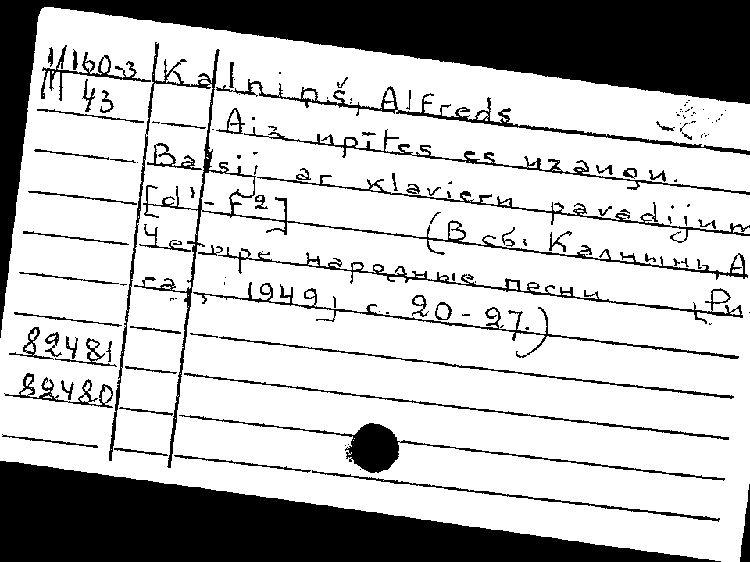 М160-3 Kalniņš, Alfreds
43
Aiz upītes es uzaugu.
Balsij ar klavieru pavadijum
[d¹-f²] (В сб. Калнынь, А
Четыре народные песни [Ри-
га], 1949, с. 20-27.)
82481
82480